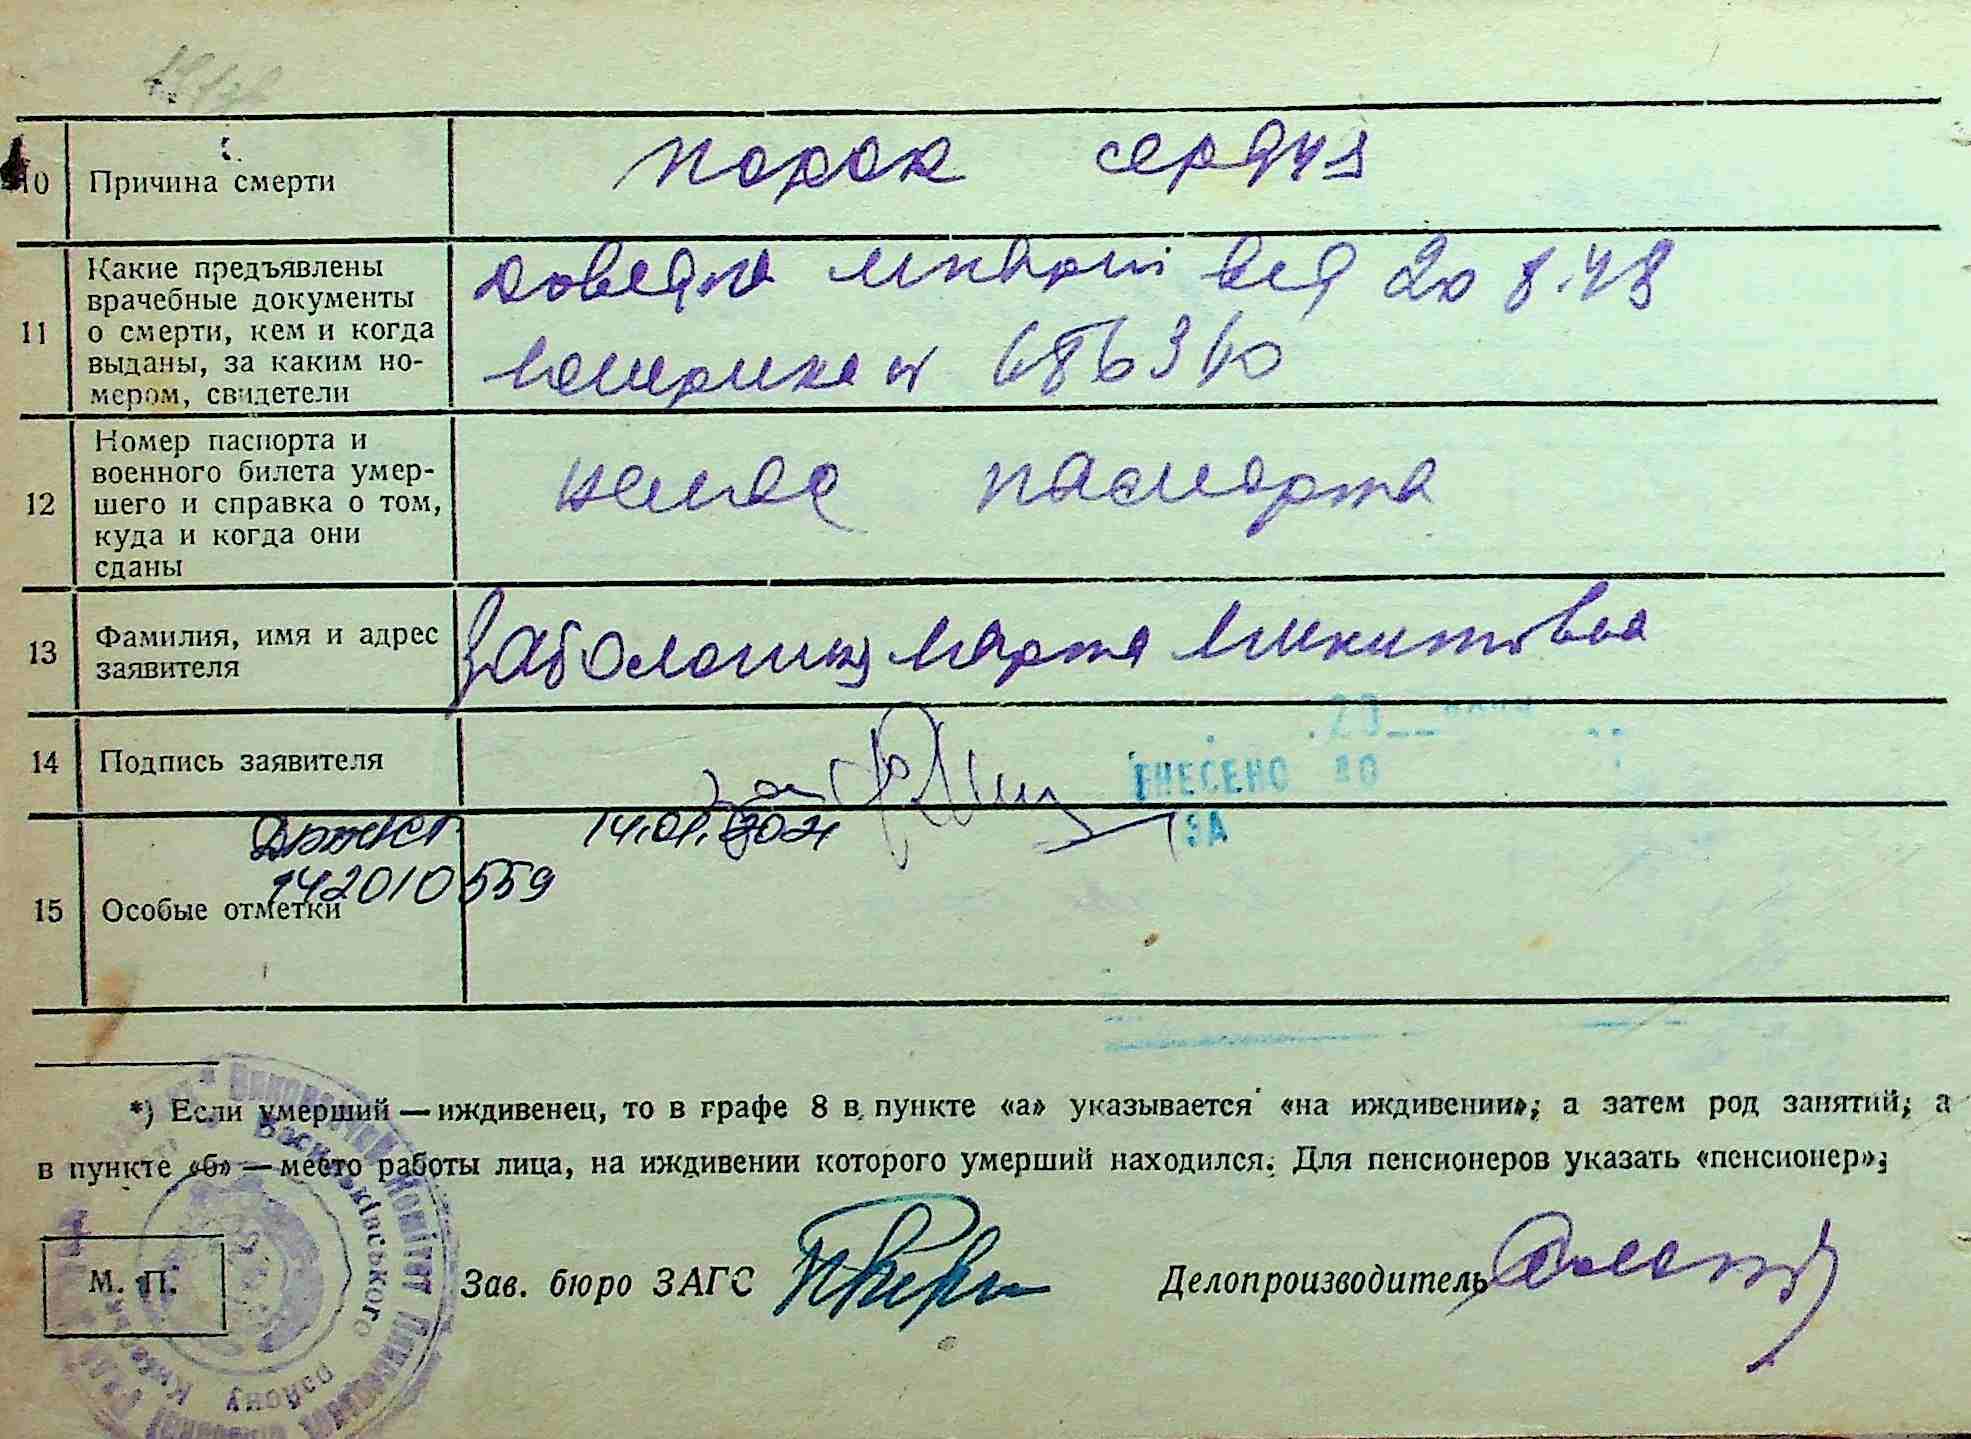 10 Причина смерти порок сердця
11 Какие предъявлены
врачебные документы
о смерти, кем и когда
выданы, за каким но-
мером, свидетели
довідка лікарні від 20 8.48
номер
12 Номер паспорта и
военного билета умер-
шего и справка о том,
куда и когда они
сданы
немає паспорта
13 Фамилия, имя и адрес
заявителя
Марта Микитовна
14 Подпись заявителя
ВНЕСЕНО ДО
ДРАЦСГ
14.01.2021
142010559
15 Особые отметки
*) Если умерший — иждивенец, то в графе 8 в пункте «а» указывается «на иждивении»; а затем род занятий; а
в пункте «б» — место работы лица, на иждивении которого умерший находился. Для пенсионеров указать «пенсионер»;
М. П.
Зав. бюро ЗАГС
Делопроизводитель
Васильківського
району